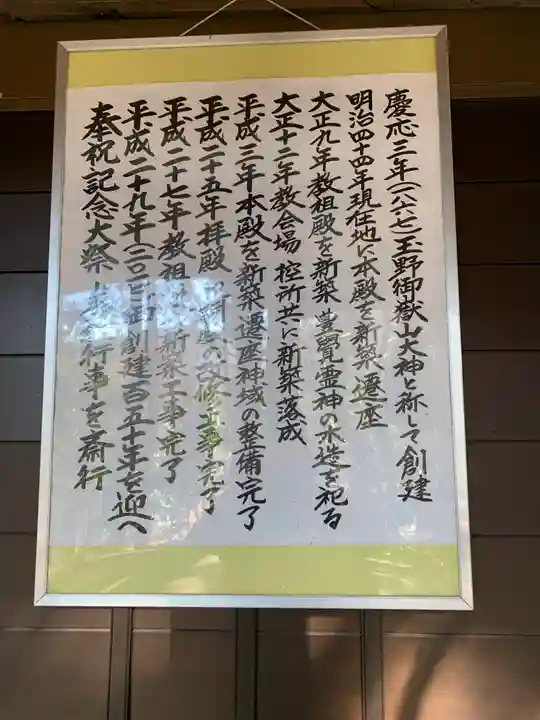 慶応三年(一八六七)玉野御嶽山大神と称して創建
明治四十四年現在地に本殿を新築遷座
大正九年教祖殿を新築 豊覚霊神の木造を祀る
大正十二年教会場 控所共に新築落成
平成三年本殿を新築遷座神域の整備完了
平成二十五年拝殿 改修工事完了
平成二十七年教祖 新築工事完了
平成二十九年(二〇 御創建百五十年を迎へ
奉祝記念大祭 行事を斎行